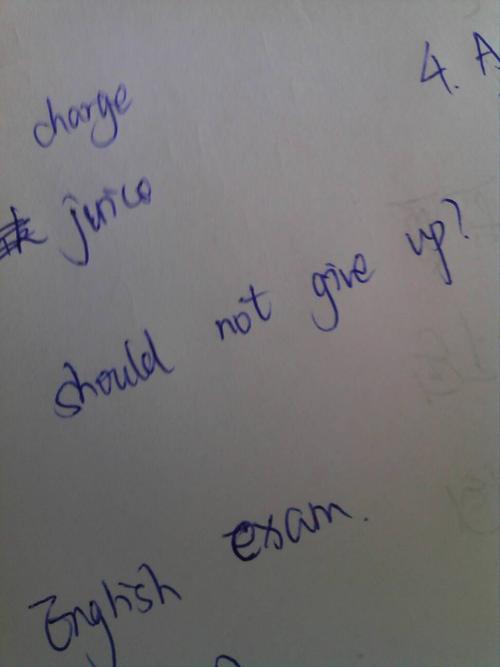 charge
4. A
juice
should not give up?
English exam.